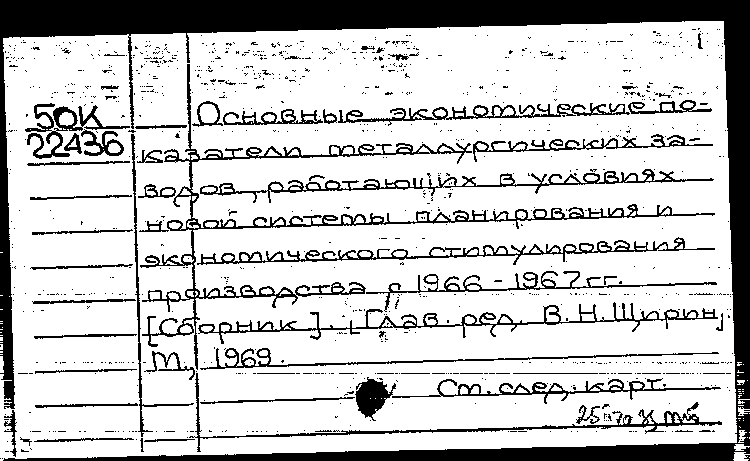 50К
22436
Основные экономические по-
казатели металлургических за-
водов, работающих в условиях
новой системы планирования и
экономического стимулирования
производства с 1966 - 1967 гг.
[Сборник]. [Глав. ред. В.Н. Ширин],
М., 1969.
См. след. карт.